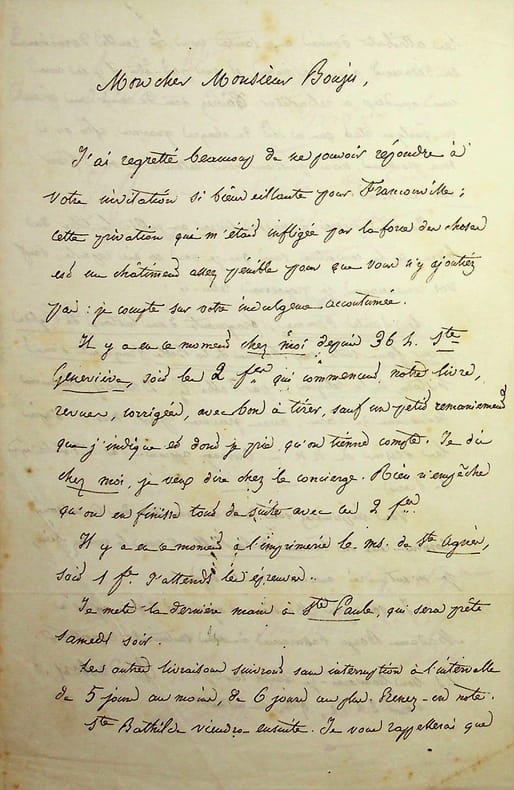 Mon cher Monsieur Bouju,
J'ai regretté beaucoup de ne pouvoir répondre à
votre invitation si bienveillante pour Franconville ;
cette privation qui m'était infligée par la force des choses
est un châtiment assez pénible pour que vous n'y ajoutiez
pas : je compte sur votre indulgence accoutumée.
Il y a en ce moment chez moi depuis 36 h. Ste
Geneviève, soit les 2 fes qui commencent notre livre,
revues, corrigées, avec bon à tirer, sauf un petit remaniement
que j'indique et dont je prie qu'on tienne compte. Je dis
chez moi, je veux dire chez le concierge. Rien n'empêche
qu'on en finisse tout de suite avec ces 2 fes.
Il y a en ce moment à l'imprimerie le ms. de Ste Agnès,
soit 1 fe. J'attends les épreuves..
Je mets la dernière main à Ste Paule, qui sera prête
samedi soir.
Les autres livraisons suivront sans interruption à l'intervalle
de 5 jours au moins, de 6 jours au plus. Prenez-en note.
Ste Bathilde viendra ensuite. Je vous rappellerai que